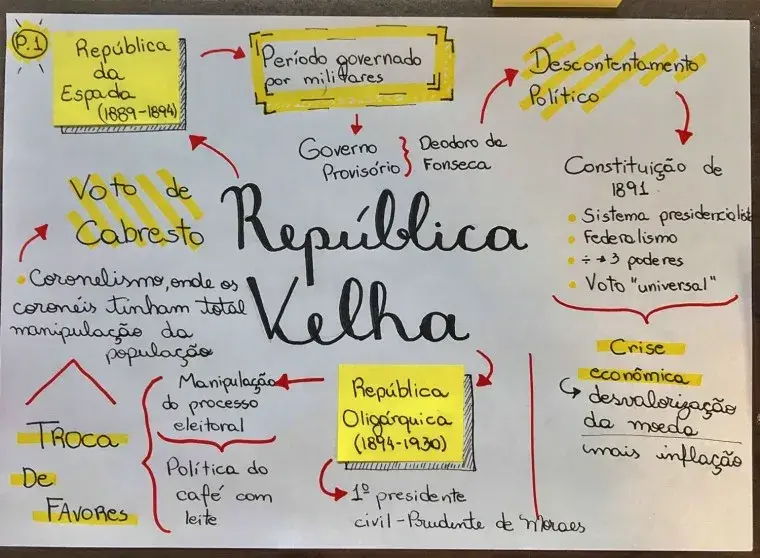 P.1
República
da
Espada
(1889-1894)
Período governado
por militares
Governo
Provisório } Deodoro da
Fonseca
Descontentamento
Político
Constituição de
1891
• Sistema presidencialista
• Federalismo
• ÷ → 3 poderes
• Voto "universal"
Crise
econômica
↳ desvalorização
da moeda
mais inflação
República
Velha
República
Oligárquica
(1894-1930)
1º presidente
civil - Prudente de Moraes
Manipulação
do processo
eleitoral
Política do
café com
leite
Troca
De
Favores
• Coronelismo, onde os
coronéis tinham total
manipulação da
população
Voto de
Cabresto